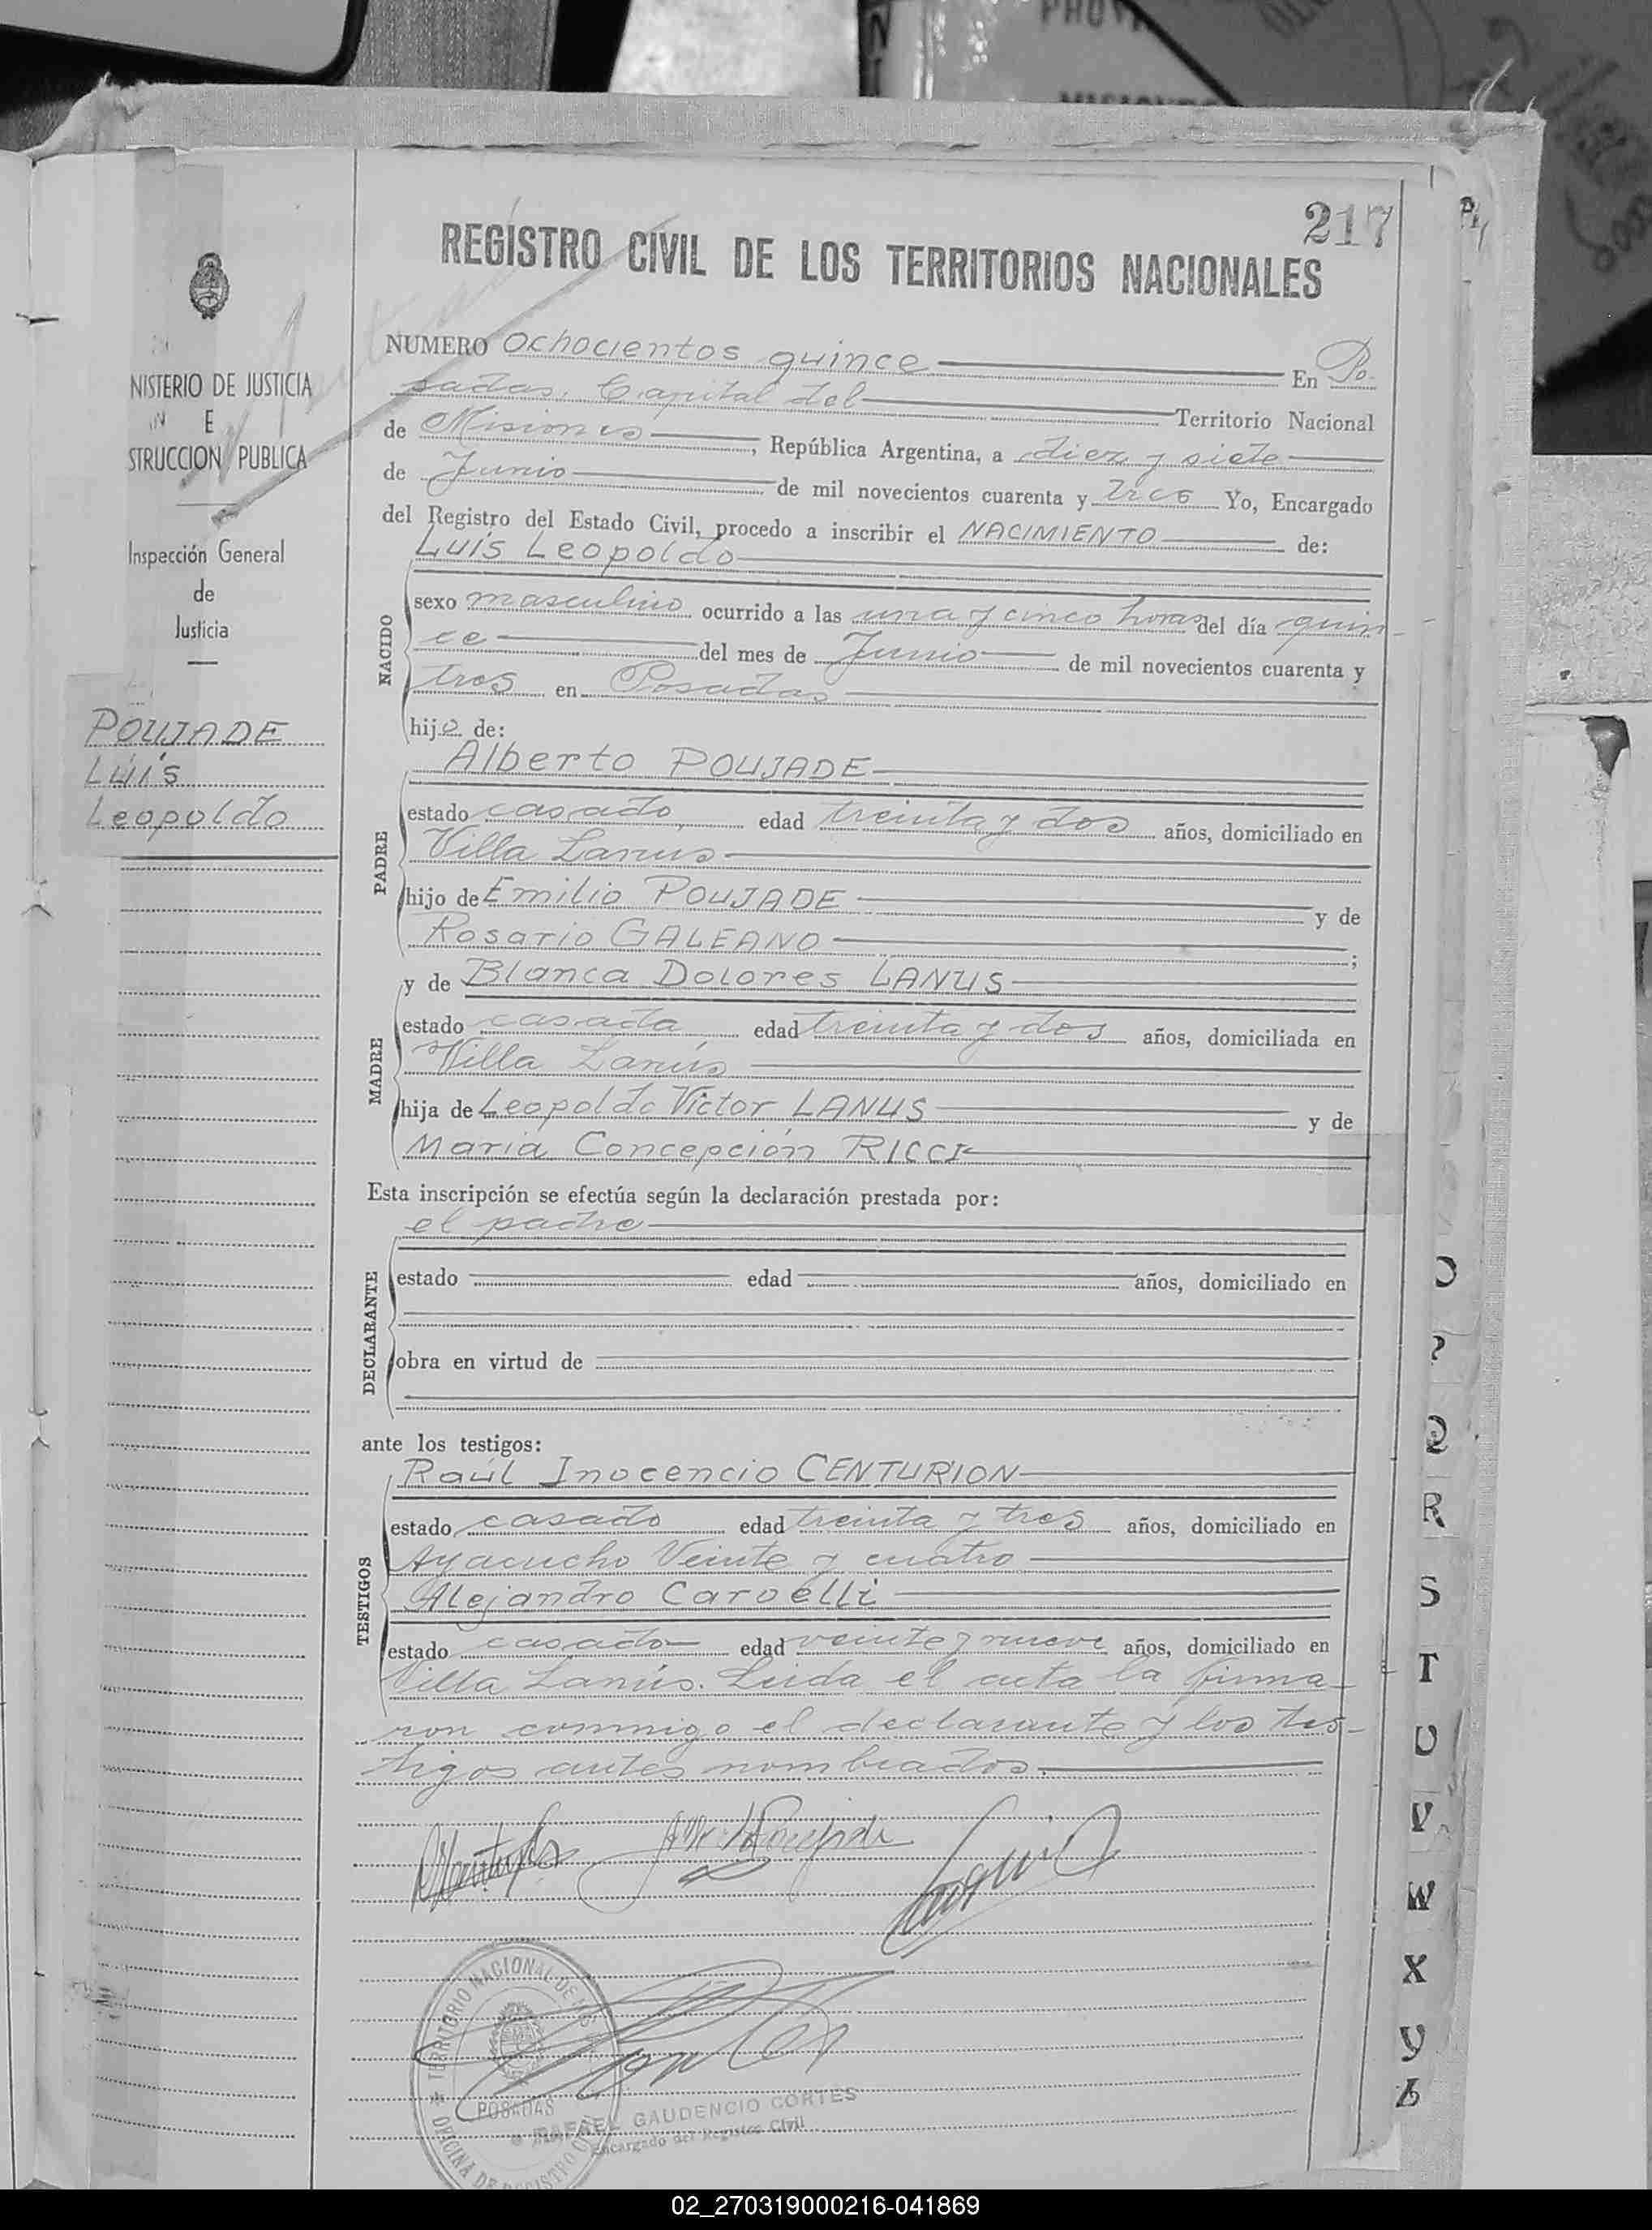 217
REGISTRO CIVIL DE LOS TERRITORIOS NACIONALES
NISTERIO DE JUSTICIA
E
STRUCCION PUBLICA
Inspección General
de
Justicia
POUJADE
Luís
Leopoldo
NUMERO Ochocientos quince En Po-
sadas, Capital del Territorio Nacional
de Misiones, República Argentina, a diez y siete
de Junio de mil novecientos cuarenta y tres Yo, Encargado
del Registro del Estado Civil, procedo a inscribir el NACIMIENTO de:
Luís Leopoldo
NACIDO
sexo masculino ocurrido a las una y cinco horas del día quin-
ce del mes de Junio de mil novecientos cuarenta y
tres en Posadas
hijo de:
Alberto POUJADE
PADRE
estado casado, edad treinta y dos años, domiciliado en
Villa Lanus
hijo de Emilio POUJADE y de
Rosario GALEANO ;
y de Blanca Dolores LANUS
MADRE
estado casada edad treinta y dos años, domiciliada en
Villa Lanús
hija de Leopoldo Victor LANUS y de
Maria Concepción RICCI
Esta inscripción se efectúa según la declaración prestada por:
el padre
DECLARANTE
estado edad años, domiciliado en
obra en virtud de
ante los testigos:
Raúl Inocencio CENTURION
TESTIGOS
estado casado edad treinta y tres años, domiciliado en
Ayacucho Veinte y cuatro
Alejandro Caroelli
estado casado edad veinte y nueve años, domiciliado en
Villa Lanús. Leida el acta la firma-
ron conmigo el declarante y los tes-
tigos antes nombrados.
TERRITORIO NACIONAL DE
POSADAS
OFICINA DE REGISTRO
RAFAEL GAUDENCIO CORTES
Encargado del Registro Civil
P
Q
R
S
T
U
V
W
X
Y
02_270319000216-041869